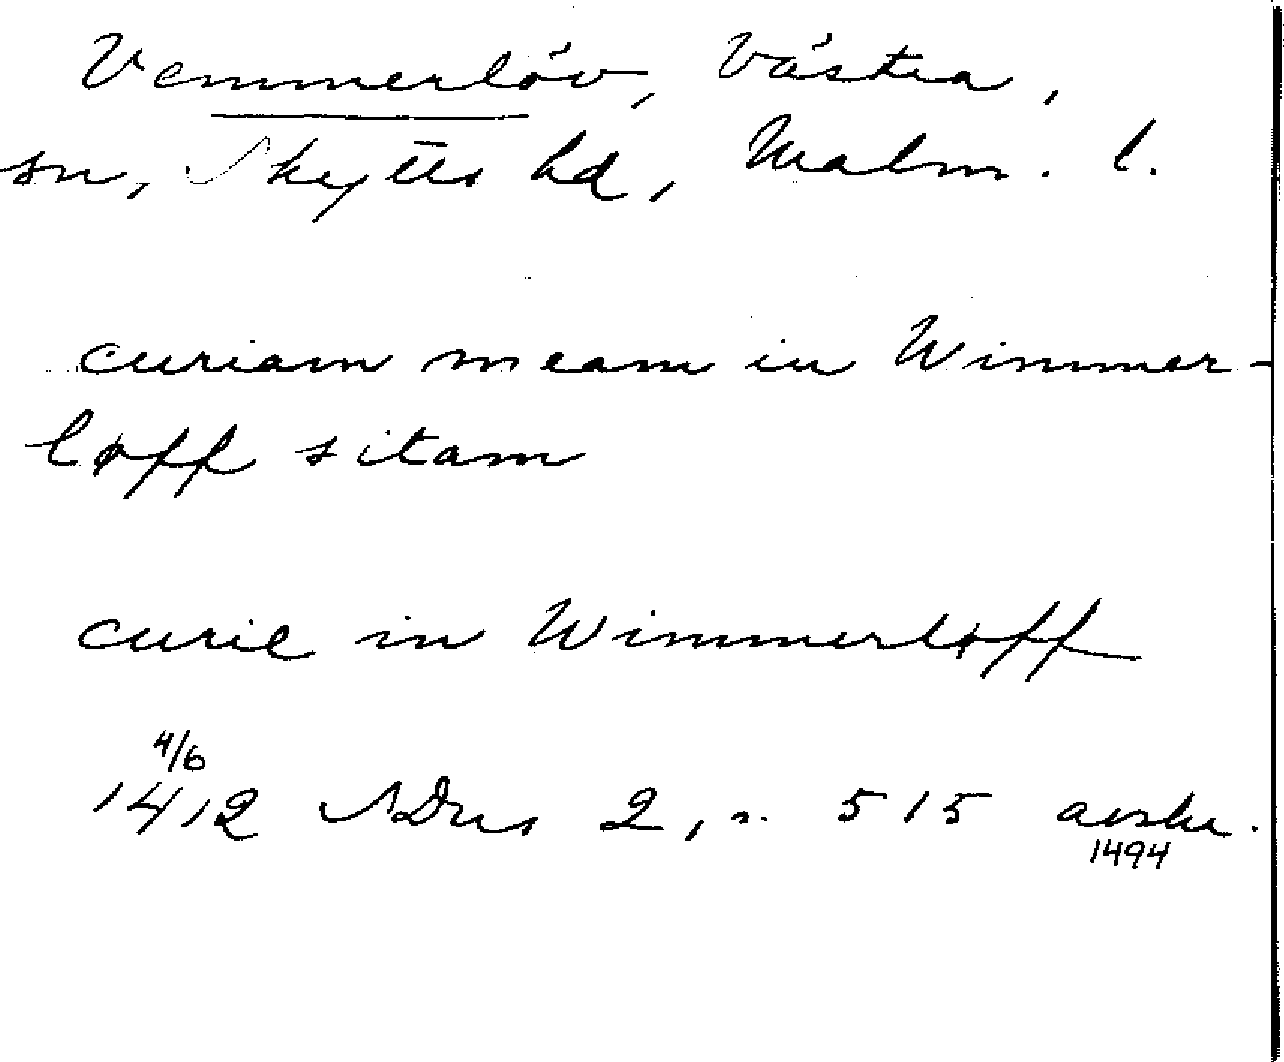 Vemmerlöv, Västra,
sn, Skytts hd, Malm. l.
curiam meam in Wimmer-
løff sitam
curie in Wimmerløff
4/6
1412 SDns 2, s. 515 avskr.
1494